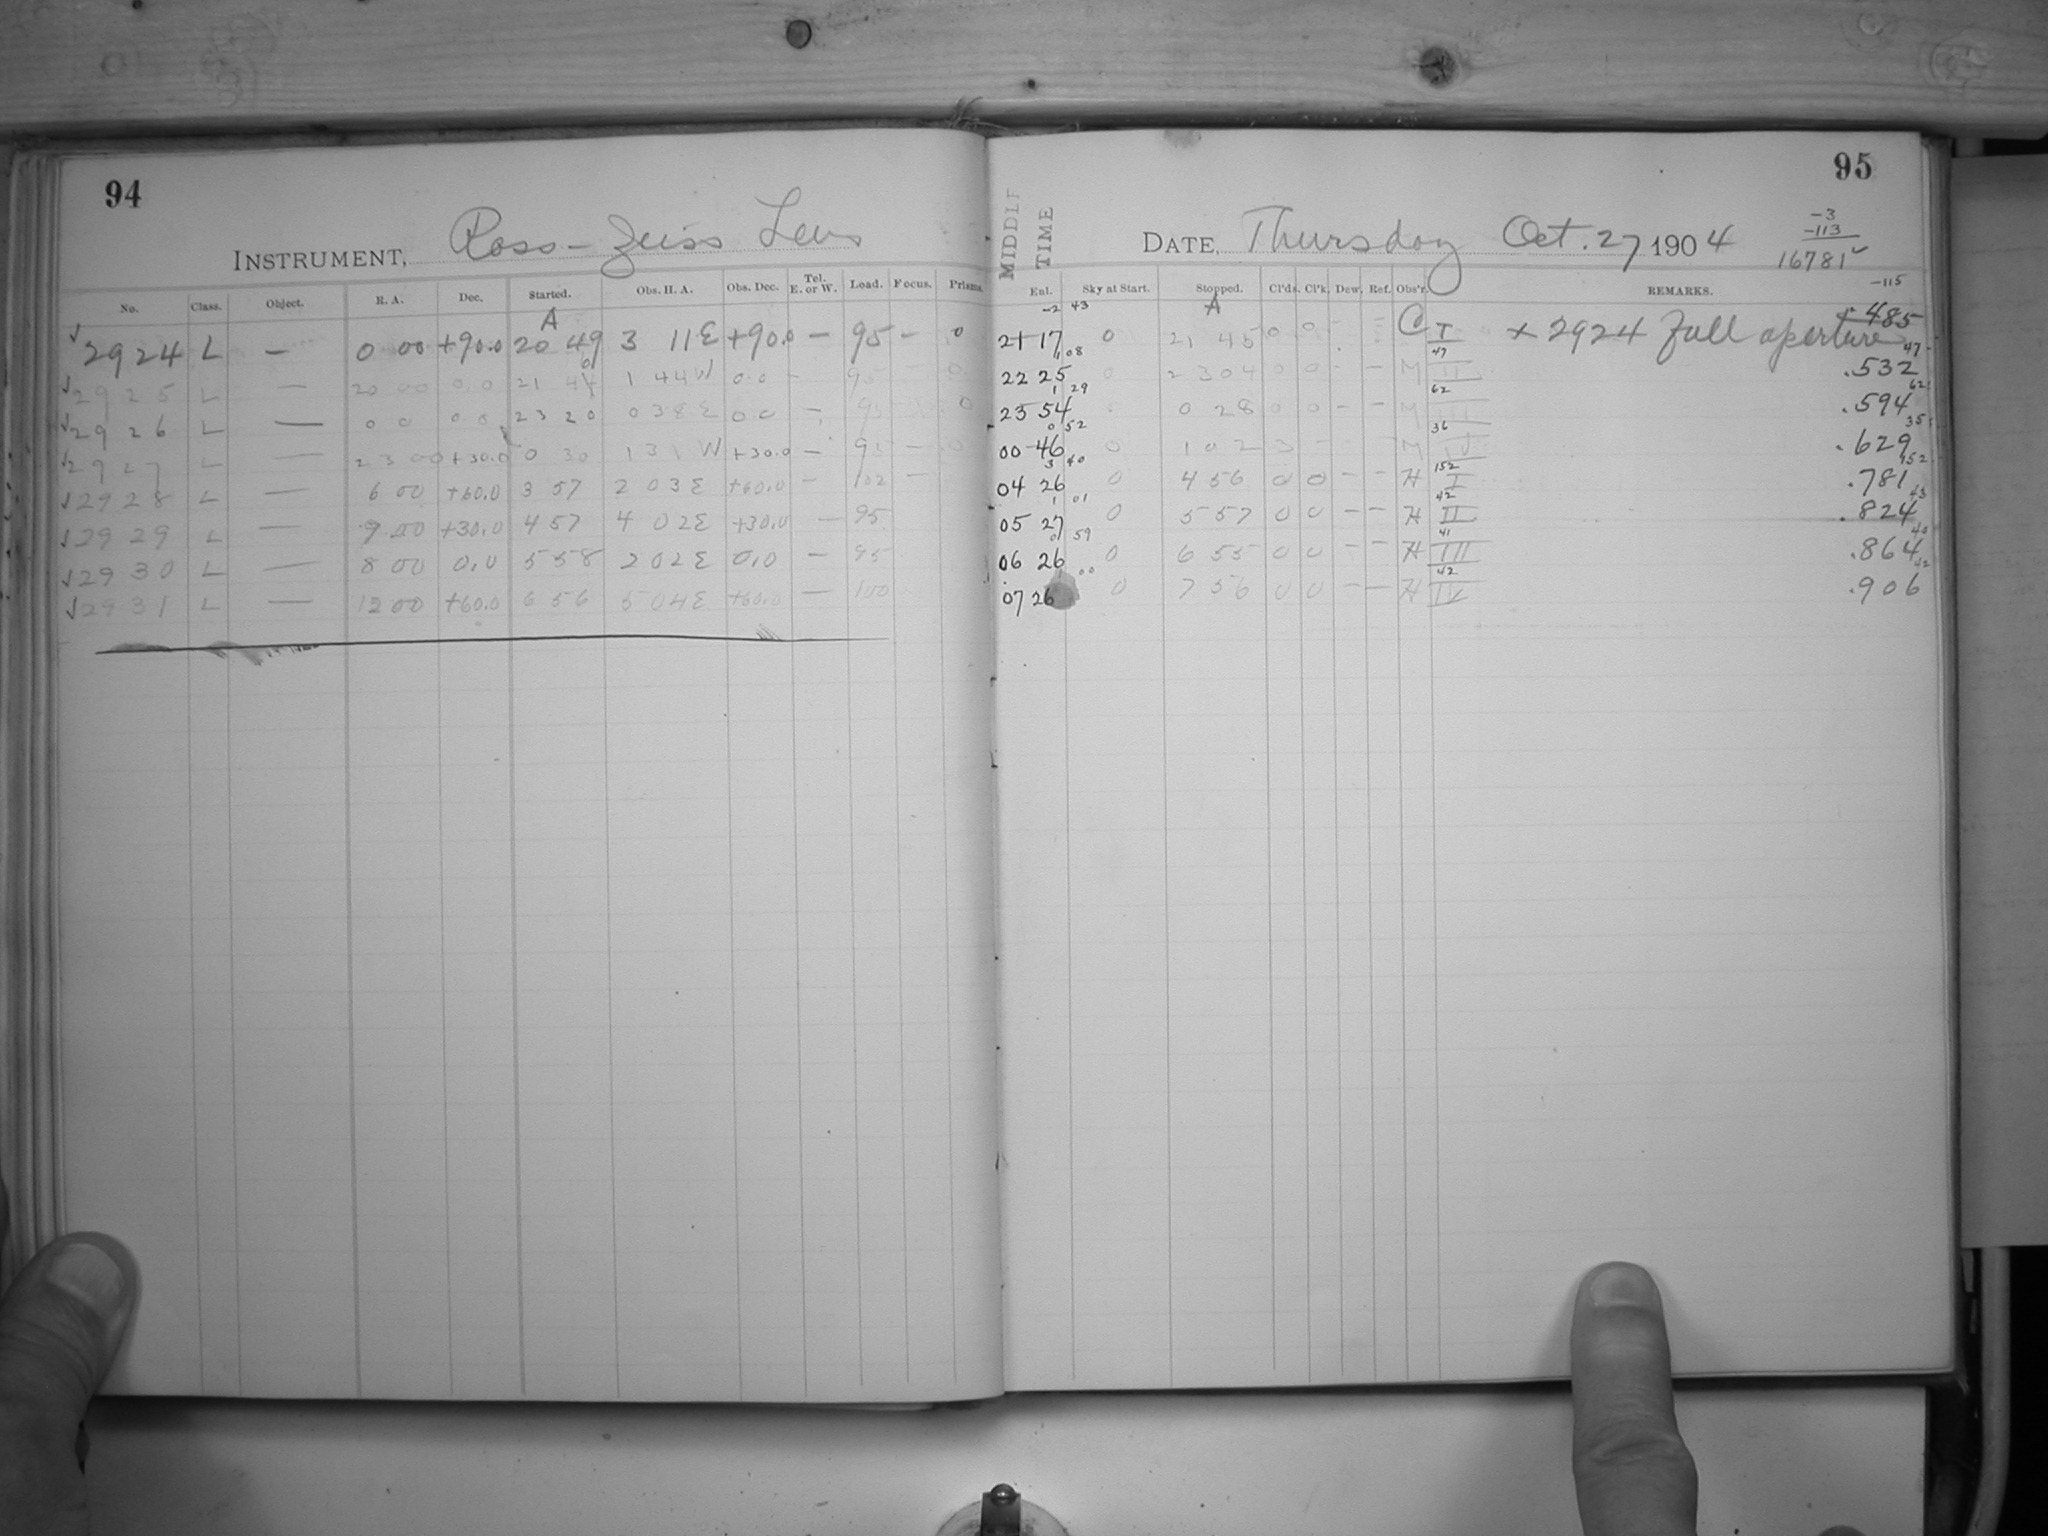 94
INSTRUMENT, Ross-Zeiss Lens
No. Class. Object. R. A. Dec. Started. Obs. H. A. Obs. Dec. Tel. E. or W. Load. Focus. Prisms.
A
2924 L — 0 00 +90.0 20 49 3 11E +90.0 — 95 — 0
2925 L — 20 00 0.0 21 4 1 44W 0.0 - 95 - 0
2926 L — 0 0 0.0 23 20 0 38E 0.0 — 95 0
2927 L — 23 00 +30.0 0 30 1 31W +30.0 — 95 - 0
2928 L — 6 00 +60.0 3 57 2 03E +60.0 — 102 -
2929 L — 9 00 +30.0 4 57 4 02E +30.0 — 95
2930 L — 8 00 0.0 5 58 2 02E 0.0 — 95
2931 L — 12 00 +60.0 6 56 5 04E +60.0 — 100
95
MIDDLE TIME
DATE, Thursday Oct. 27 1904
-3
-113
16781
-115
Enl. Sky at Start. Stopped. Cl'ds. Cl'k. Dew. Ref. Obs'r. REMARKS.
-2 43 A
21 17 0 21 45 0 0 - - C I x 2924 Full aperture .485
1 08 47 47
22 25 0 23 04 0 0 - - M II .532
1 29 62 62
23 54 0 28 0 0 - - M III .594
0 52 36 35
00 46 0 1 02 M IV .629
3 40 152 152
04 26 0 4 56 0 0 - - H I .781
1 01 42 43
05 27 0 5 57 0 0 - - H II .824
0 59 41 40
06 26 0 6 55 0 0 - - H III .864
00 42 42
07 26 0 7 56 0 0 - - H IV .906